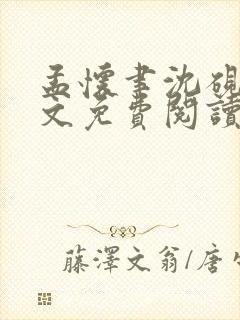 孟懷書沈硯
文免費閱讀
藤澤文翁/唐